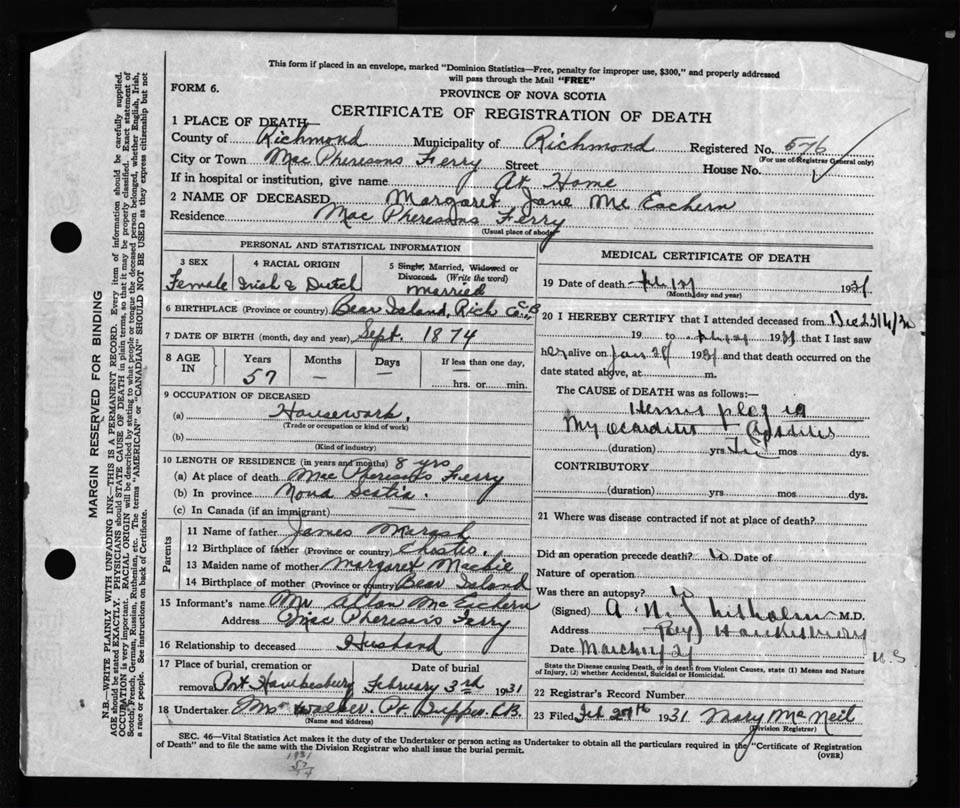 This form if placed in an envelope, marked "Dominion Statistics—Free, penalty for improper use, $300," and properly addressed
will pass through the Mail "FREE"
FORM 6.
PROVINCE OF NOVA SCOTIA
CERTIFICATE OF REGISTRATION OF DEATH
1 PLACE OF DEATH—
County of Richmond Municipality of Richmond Registered No. 576
(For use of Registrar General only)
City or Town Mac Pheresons Ferry Street House No.
If in hospital or institution, give name At Home
2 NAME OF DECEASED Margaret Jane Mc Eachern
Residence Mac Pheresons Ferry
(Usual place of abode)
PERSONAL AND STATISTICAL INFORMATION
3 SEX 4 RACIAL ORIGIN 5 Single, Married, Widowed or Divorced. (Write the word)
Female Irish & Dutch married
6 BIRTHPLACE (Province or country) Bear Island, Rich Co. C.B
7 DATE OF BIRTH (month, day and year) Sept. 1874
8 AGE IN Years Months Days If less than one day,
57 — — hrs. or min.
9 OCCUPATION OF DECEASED
(a) Housework.
(Trade or occupation or kind of work)
(b)
(Kind of industry)
10 LENGTH OF RESIDENCE (in years and months) 8 yrs
(a) At place of death Mac Pheresons Ferry
(b) In province Nova Scotia.
(c) In Canada (if an immigrant) —
Parents
11 Name of father James
12 Birthplace of father (Province or country)
13 Maiden name of mother Margaret Mackie
14 Birthplace of mother (Province or country) Bear Island
15 Informant's name Mr Allan Mc Eachern
Address Mac Pheresons Ferry
16 Relationship to deceased Husband
17 Place of burial, cremation or removal Date of burial
Port Hawkesbery February 3rd 1931
18 Undertaker Mr Walker. Pt Tupper C.B.
(Name and address)
MEDICAL CERTIFICATE OF DEATH
19 Date of death 1931
(Month, day and year)
20 I HEREBY CERTIFY that I attended deceased from
19 to 1931 that I last saw
her alive on Jan 1931 and that death occurred on the
date stated above, at m.
The CAUSE of DEATH was as follows:—
Hemiplegia
Myocarditis
(duration) yrs. mos dys.
CONTRIBUTORY
(duration) yrs mos dys.
21 Where was disease contracted if not at place of death?
Did an operation precede death? Date of
Nature of operation
Was there an autopsy?
(Signed) A N Chisholm M.D.
Address Port Hawkesbury N.S
Date March
State the Disease causing Death, or in death from Violent Causes, state (1) Means and Nature of Injury, (2) whether Accidental, Suicidal or Homicidal.
22 Registrar's Record Number
23 Filed Feb 27th 1931 Mary McNeil
(Division Registrar)
SEC. 46—Vital Statistics Act makes it the duty of the Undertaker or person acting as Undertaker to obtain all the particulars required in the "Certificate of Registration
of Death" and to file the same with the Division Registrar who shall issue the burial permit.
(OVER)
1931
57
MARGIN RESERVED FOR BINDING
N.B.—WRITE PLAINLY WITH UNFADING INK—THIS IS A PERMANENT RECORD. Every item of information should be carefully supplied.
AGE should be stated EXACTLY. PHYSICIANS should STATE CAUSE OF DEATH in plain terms, so that it may be properly classified. Exact statement of
OCCUPATION is very important. RACIAL ORIGIN will be described by stating to what people or tongue the deceased person belonged, whether English, Irish,
Scotch, French, German, Russian, Ruthenian, etc. The terms "AMERICAN" or "CANADIAN" SHOULD NOT BE USED as they express citizenship but not
a race or people. See instructions on back of Certificate.